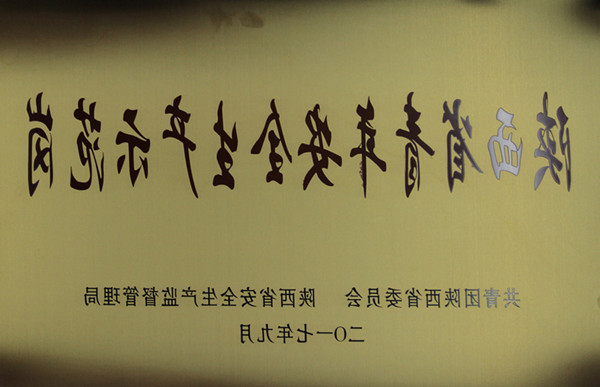 陕西省青年安全生产示范岗
共青团陕西省委员会 陕西省安全生产监督管理局
二〇一七年九月